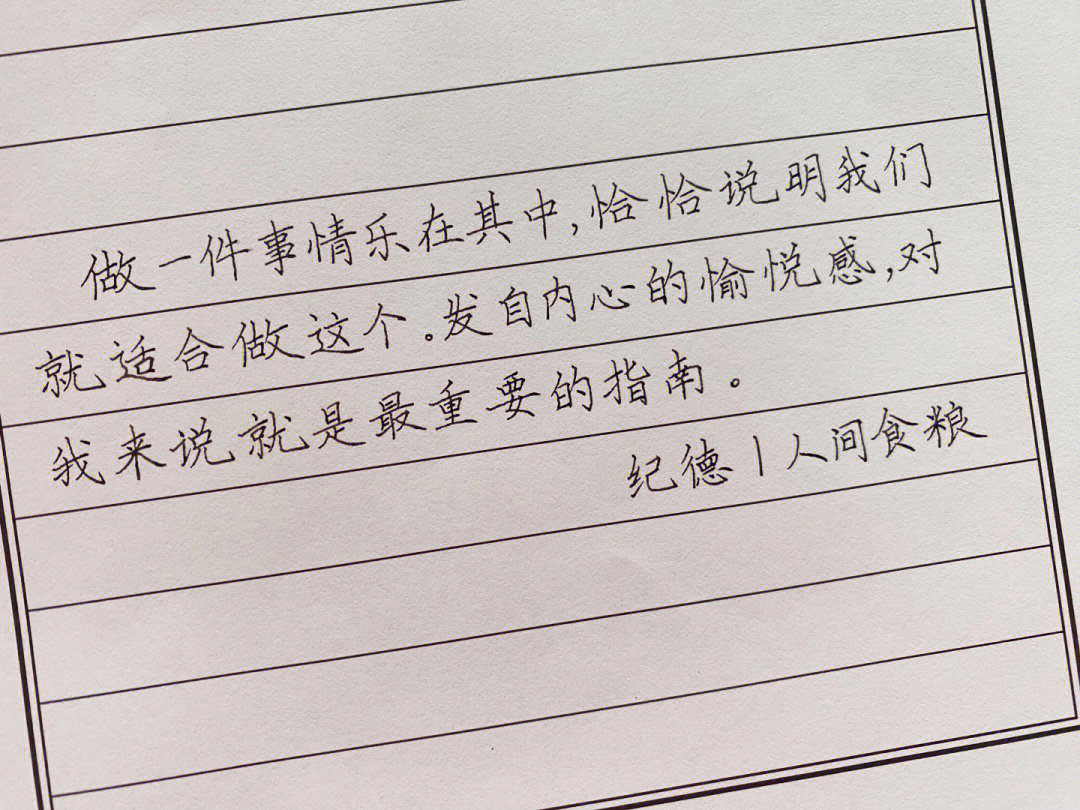 做一件事情乐在其中,恰恰说明我们
就适合做这个。发自内心的愉悦感,对
我来说就是最重要的指南。
纪德|人间食粮